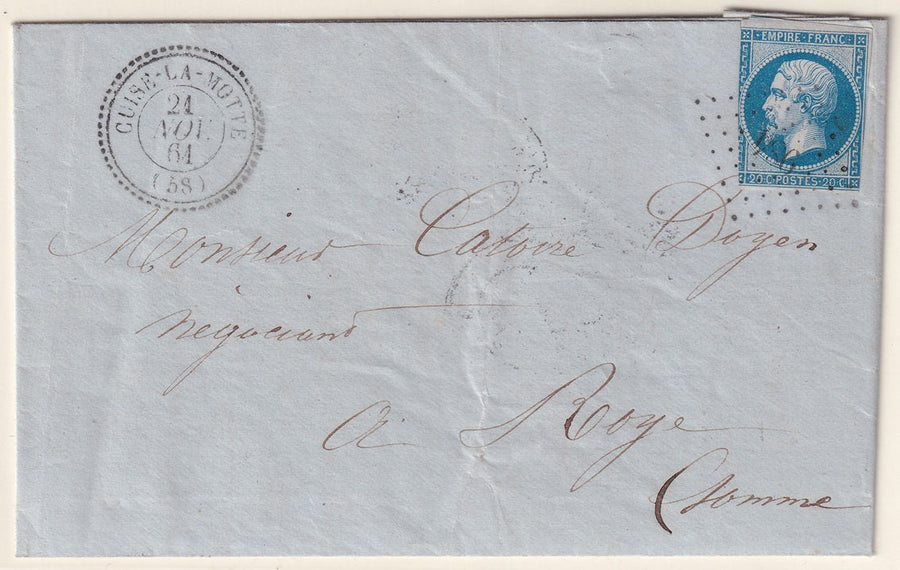 CUISE-LA-MOTTE
21
NOV.
61
(58)
EMPIRE · FRANC ·
20·C·POSTES·20·C
Monsieur Catoire Doyen
négociant
à Roye
(Somme